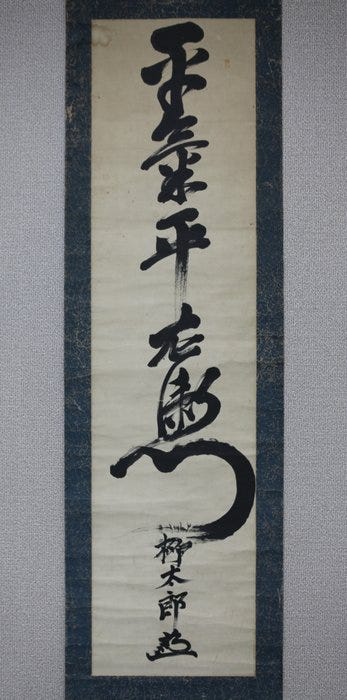 平氣平右衛門
柳太郎